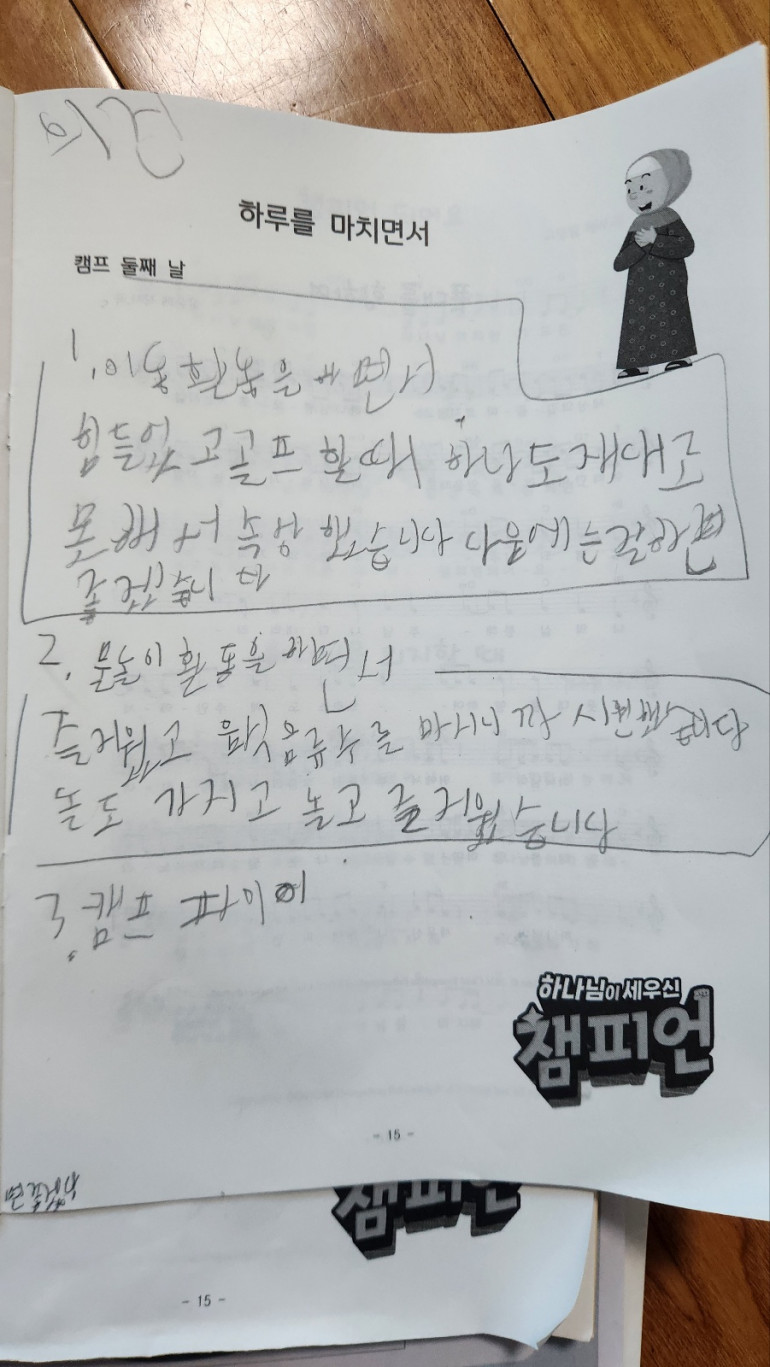 하루를 마치면서
캠프 둘째 날
1. 이동 활동을 해면서
힘들었고 골프 할때 하나도 재대로
못해서 속상했습니다 다음에는 잘하면
좋겠습니다
2. 물놀이 활동을 하면서
즐거웠고 음료수를 마시니까 시원했습니다
놀도 가지고 놀고 즐거웠습니다
3. 캠프 파이어
하나님이 세우신
챔피언
- 15 -
챔피언
- 15 -